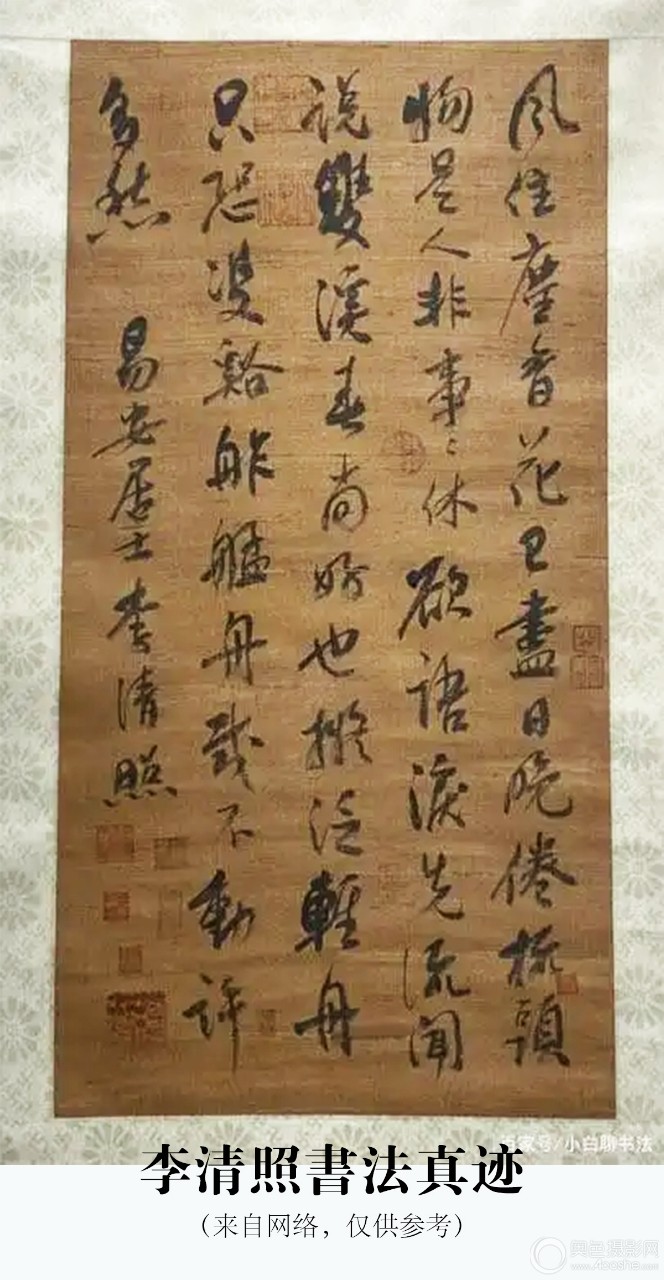 風住塵香花已盡日晚倦梳頭
物是人非事〻休欲語淚先流聞
説雙溪春尚好也擬泛輕舟
只恐雙谿舴艋舟載不動許
多愁 易安居士李清照
百家号/小白聊书法
李清照書法真迹
（来自网络，仅供参考）